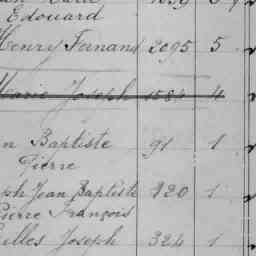 Edouard
Henry Fernand 2095 5
Marie Joseph 1584 4
n Baptiste 91 1
Pierre
ph Jean Baptiste 120 1
Pierre François
illes Joseph 324 1